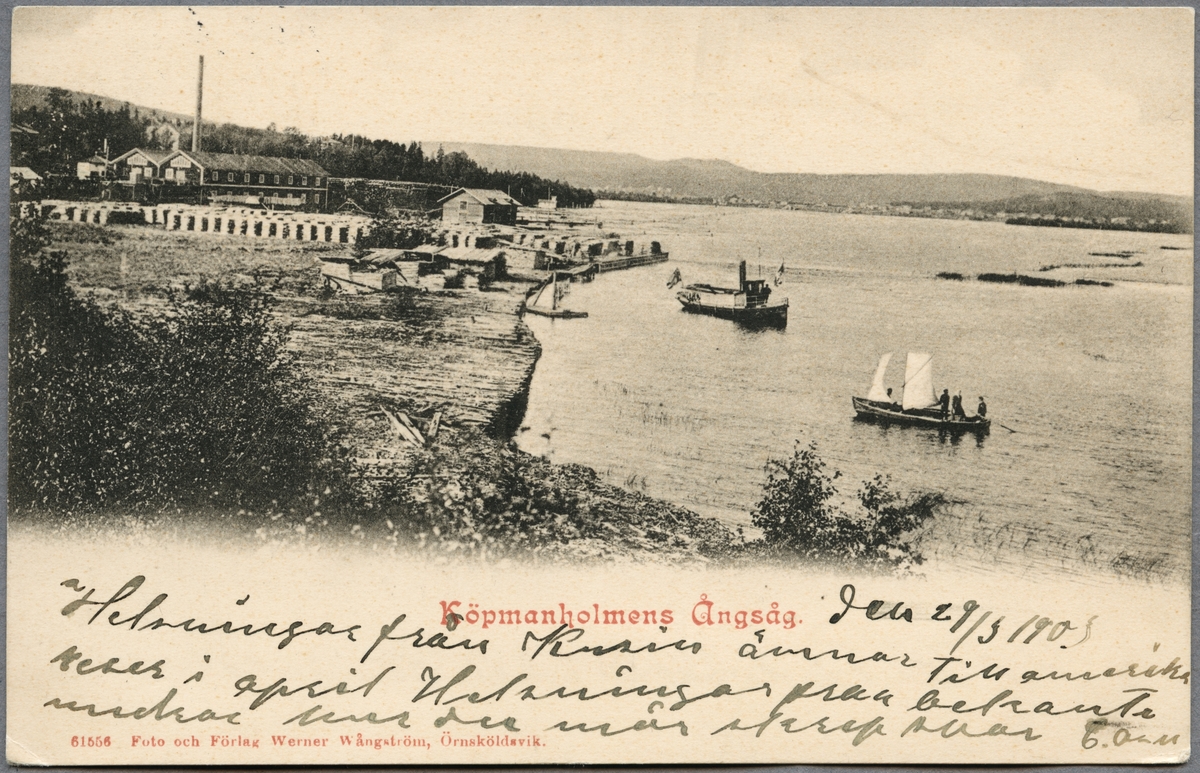 Köpmanholmens Ångsåg.
Den 29/3 1903
Helsningar från Kusin ämnar Till amerika
reser i april Helsningar från bekante
undrar hur du mår skrif svar
61556 Foto och Förlag Werner Wångström, Örnsköldsvik.